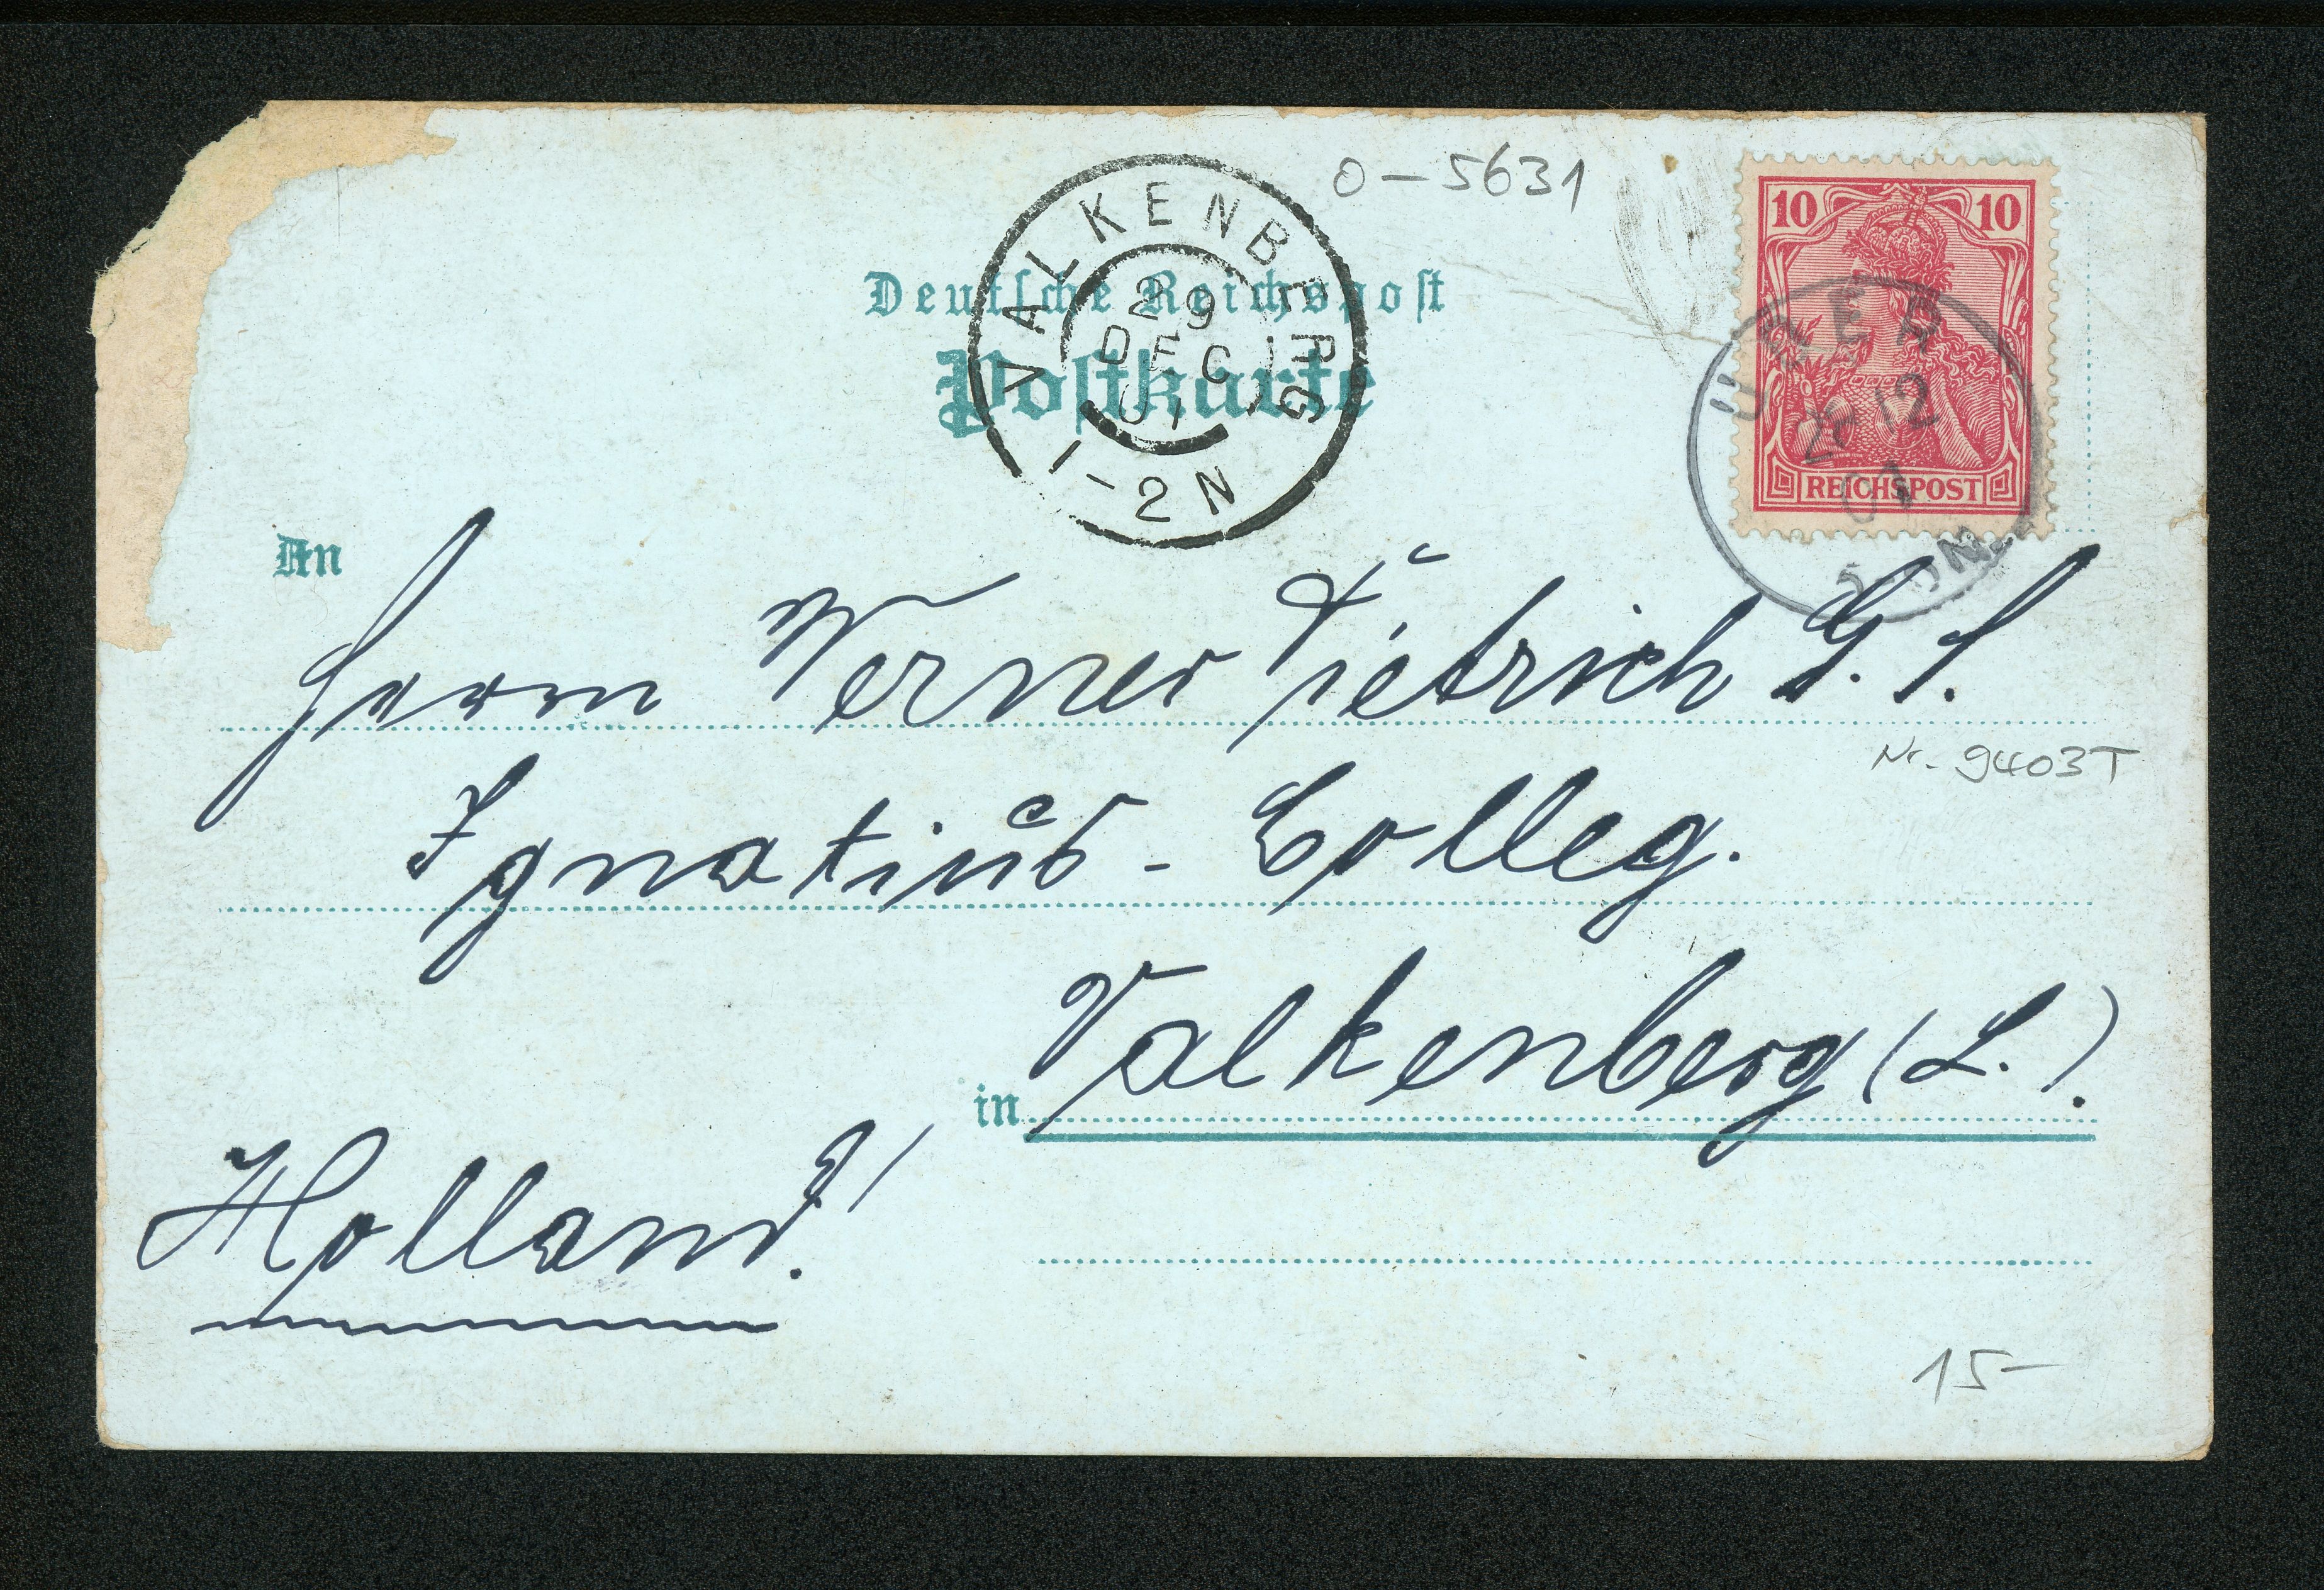 0-5631
VALKENBERG
29
DEC
01
1-2N
Deutsche Reichspost
Postkarte
10 10
REICHSPOST
12
01
An
Herrn Werner Dietrich S. J.
Nr. 9403T
Ignatius-Colleg.
in Valkenberg (L.).
Holland!
15-